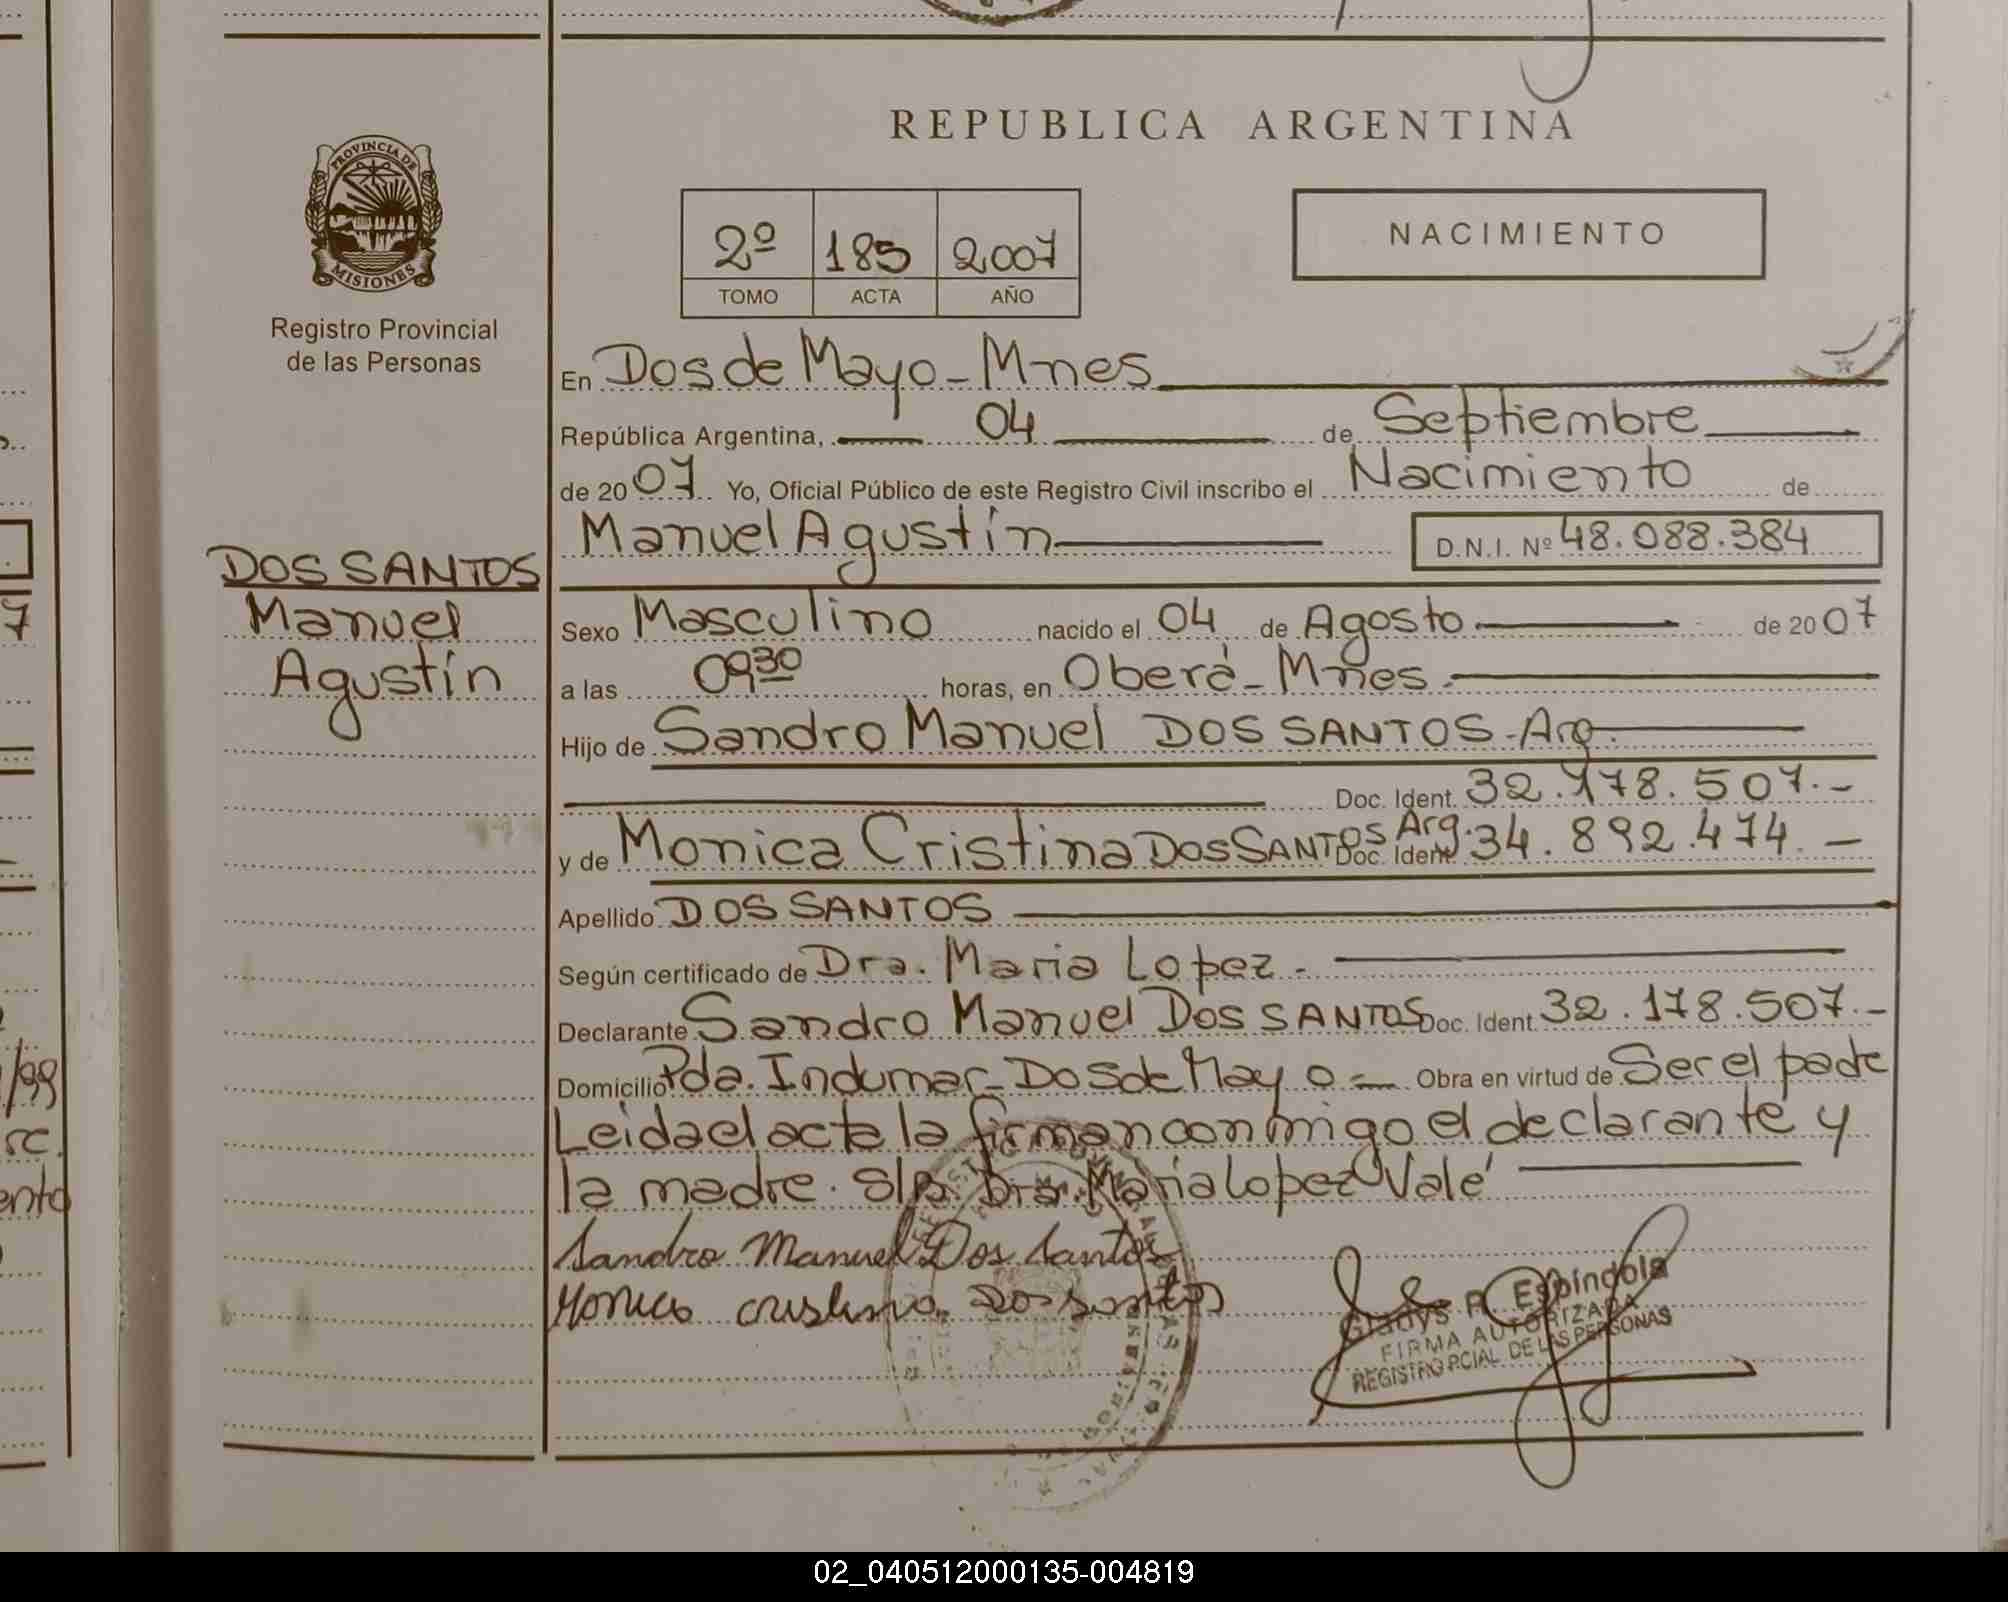 REPUBLICA ARGENTINA
PROVINCIA DE
MISIONES
Registro Provincial
de las Personas
2º 185 2007
TOMO ACTA AÑO
NACIMIENTO
En Dos de Mayo - Mnes
República Argentina, 04 de Septiembre
de 2007 Yo, Oficial Público de este Registro Civil inscribo el Nacimiento de
Manuel Agustín D.N.I. Nº 48.088.384
DOS SANTOS
Manuel
Agustín
Sexo Masculino nacido el 04 de Agosto de 2007
a las 09 30 horas, en Oberá - Mnes.
Hijo de Sandro Manuel DOS SANTOS - Arg.
Doc. Ident. 32.178.507.-
y de Monica Cristina DOS SANTOS Arg. Doc. Ident. 34.892.474.-
Apellido DOS SANTOS
Según certificado de Dra. Maria Lopez.
Declarante Sandro Manuel DOS SANTOS Doc. Ident. 32.178.507.-
Domicilio Pda. Indumar - Dos de Mayo - Obra en virtud de Ser el padre
Leida el acta la firman conmigo el declarante y
la madre. S/R. Dra. Maria Lopez Vale
Sandro Manuel Dos Santos
Monica cristina Dos santos
Gladys R. Espindola
FIRMA AUTORIZADA
REGISTRO PCIAL. DE LAS PERSONAS
7
/99
sc.
ento
02_040512000135-004819